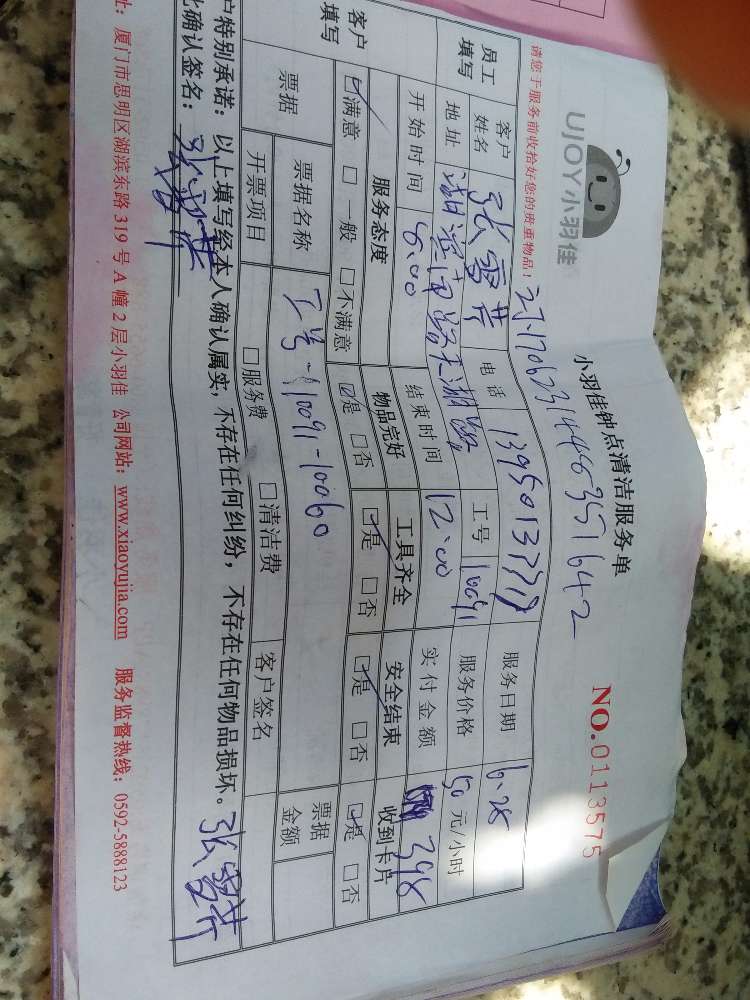 UJOY小羽佳
小羽佳钟点清洁服务单
NO.0113575
请您于服务前收拾好您的贵重物品!
员工填写 客户姓名 张雪芹 电话 服务日期 6.28
地址 工号 10091 服务价格 50 元/小时
开始时间 8:00 结束时间 12:00 实付金额 398
客户填写 服务态度 物品完好 工具齐全 安全结束 收到卡片
☑满意 □一般 □不满意 ☑是 □否 ☑是 □否 ☑是 □否 ☑是 □否
票据 票据名称 工号 10091-10060 票据金额
开票项目 □服务费 □清洁费 客户签名
户特别承诺:以上填写经本人确认属实,不存在任何纠纷,不存在任何物品损坏。
比确认签名:张雪芹 张雪芹
址:厦门市思明区湖滨东路319号A幢2层小羽佳 公司网站:www.xiaoyujia.com 服务监督热线:0592-5888123